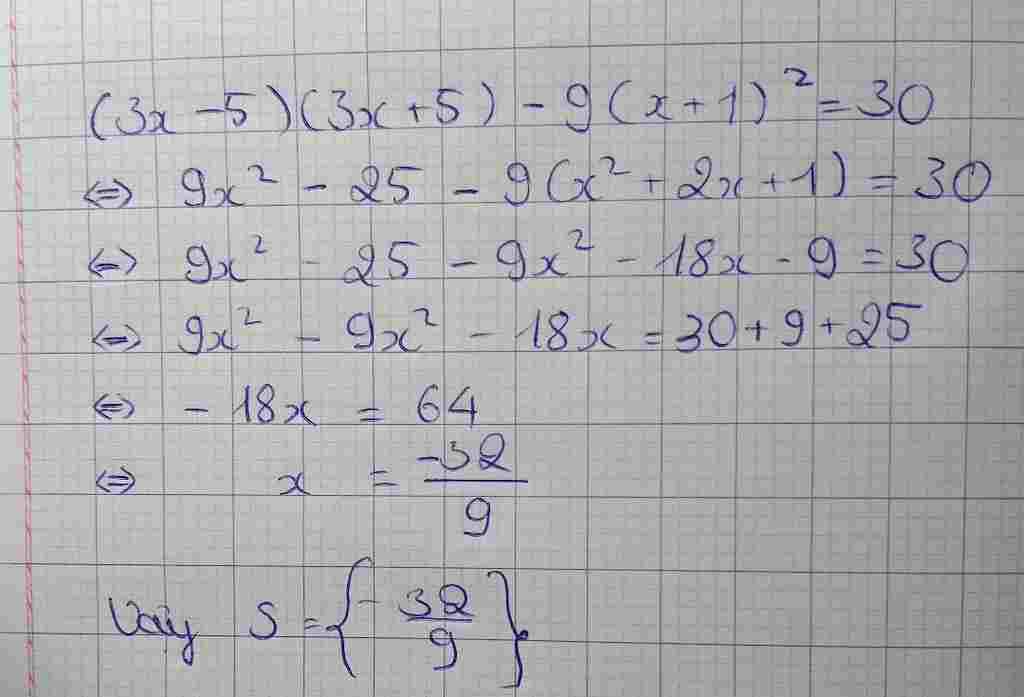 (3x - 5)(3x + 5) - 9(x + 1)² = 30
⇔ 9x² - 25 - 9(x² + 2x + 1) = 30
⇔ 9x² - 25 - 9x² - 18x - 9 = 30
⇔ 9x² - 9x² - 18x = 30 + 9 + 25
⇔ - 18x = 64
⇔ x = -32/9
Vậy S = {- 32/9}